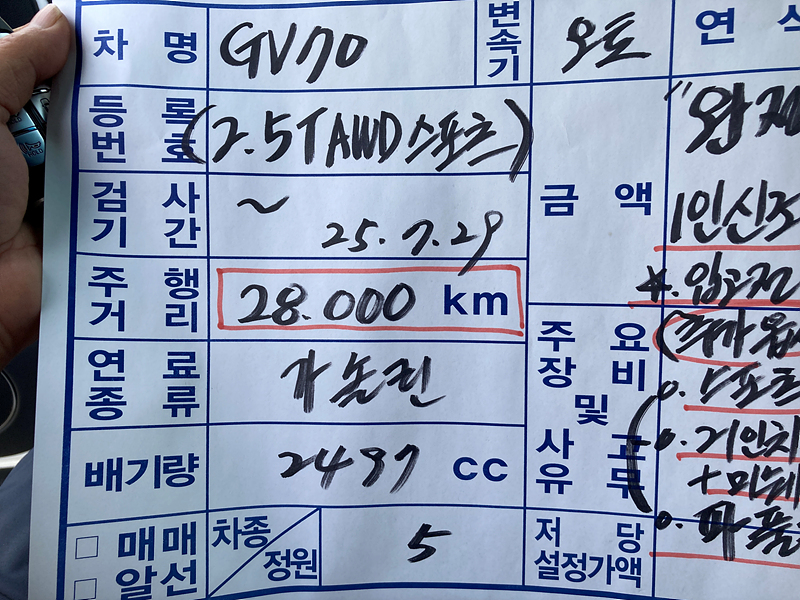 차 명 GV70 변속기 오토 연 식
등 록 번 호 (2.5T AWD 스포츠) "완전
검 사 기 간 ~ 25.7.29 금 액 1인신조
주 행 거 리 28.000 km 입고전
연 료 종 류 가솔린 주 요 장 비 및 사 고 유 무 (추가옵
0. 스포츠
0. 21인치
배기량 2497 cc +미쉐
0. 파퓰
□ 매매 차종/정원 5 저 당 설정가액
□ 알선